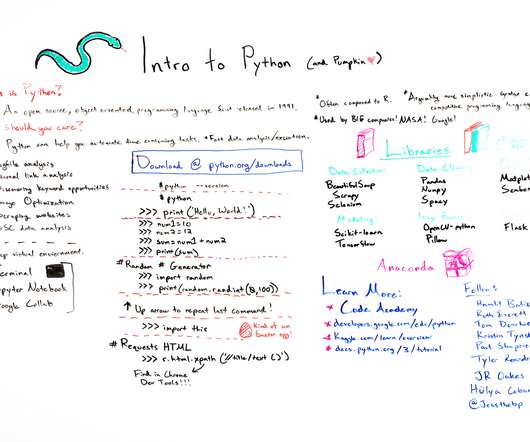 Intro to Python (and Pumpkin)
is Python?
An open source, object oriented programming language first released in 1991.
should you care?
Python can help you automate time consuming tasks. *Fast data analysis/execution.
*Often compared to R.
*Arguably more simplistic syntax
*Used by BIG companies! NASA! Google!
Logfile analysis
internal link analysis
Discovering keyword opportunities
Image Optimization
Scraping websites
GSC data analysis
virtual environment.
Terminal
Jupyter Notebook
Google Collab
Download @ python.org/downloads
$ python --version
$ python
>>> print('Hello, World!')
>>> num1=10
>>> num2=12
>>> sum=num1+num2
>>> print(sum)
# Random # Generator
>>> import random
>>> print(random.randint(
↑ Up arrow to repeat last command!
>>> import this
Kind of an Easter egg!
# Requests HTML
>>> r.html.xpath('//title/text()')
Find in Chrome
Dev Tools!!!
Libraries
Data Collection
BeautifulSoup
Scrapy
Selenium
Data Cleaning
Pandas
Numpy
Spacy
Modeling
Scikit-learn
Tensorflow
OpenCV-python
Pillow
Flask
Anaconda
Learn More:
* Code Academy
* developers.google.com/edu/python
* Kaggle.com/learn/overview
* docs.python.org/3/tutorial
Follow:
Ruth Everett
Tom
Kristin
Paul Shapiro
Tyler
JR Oakes
Hülya
@Jessthebp